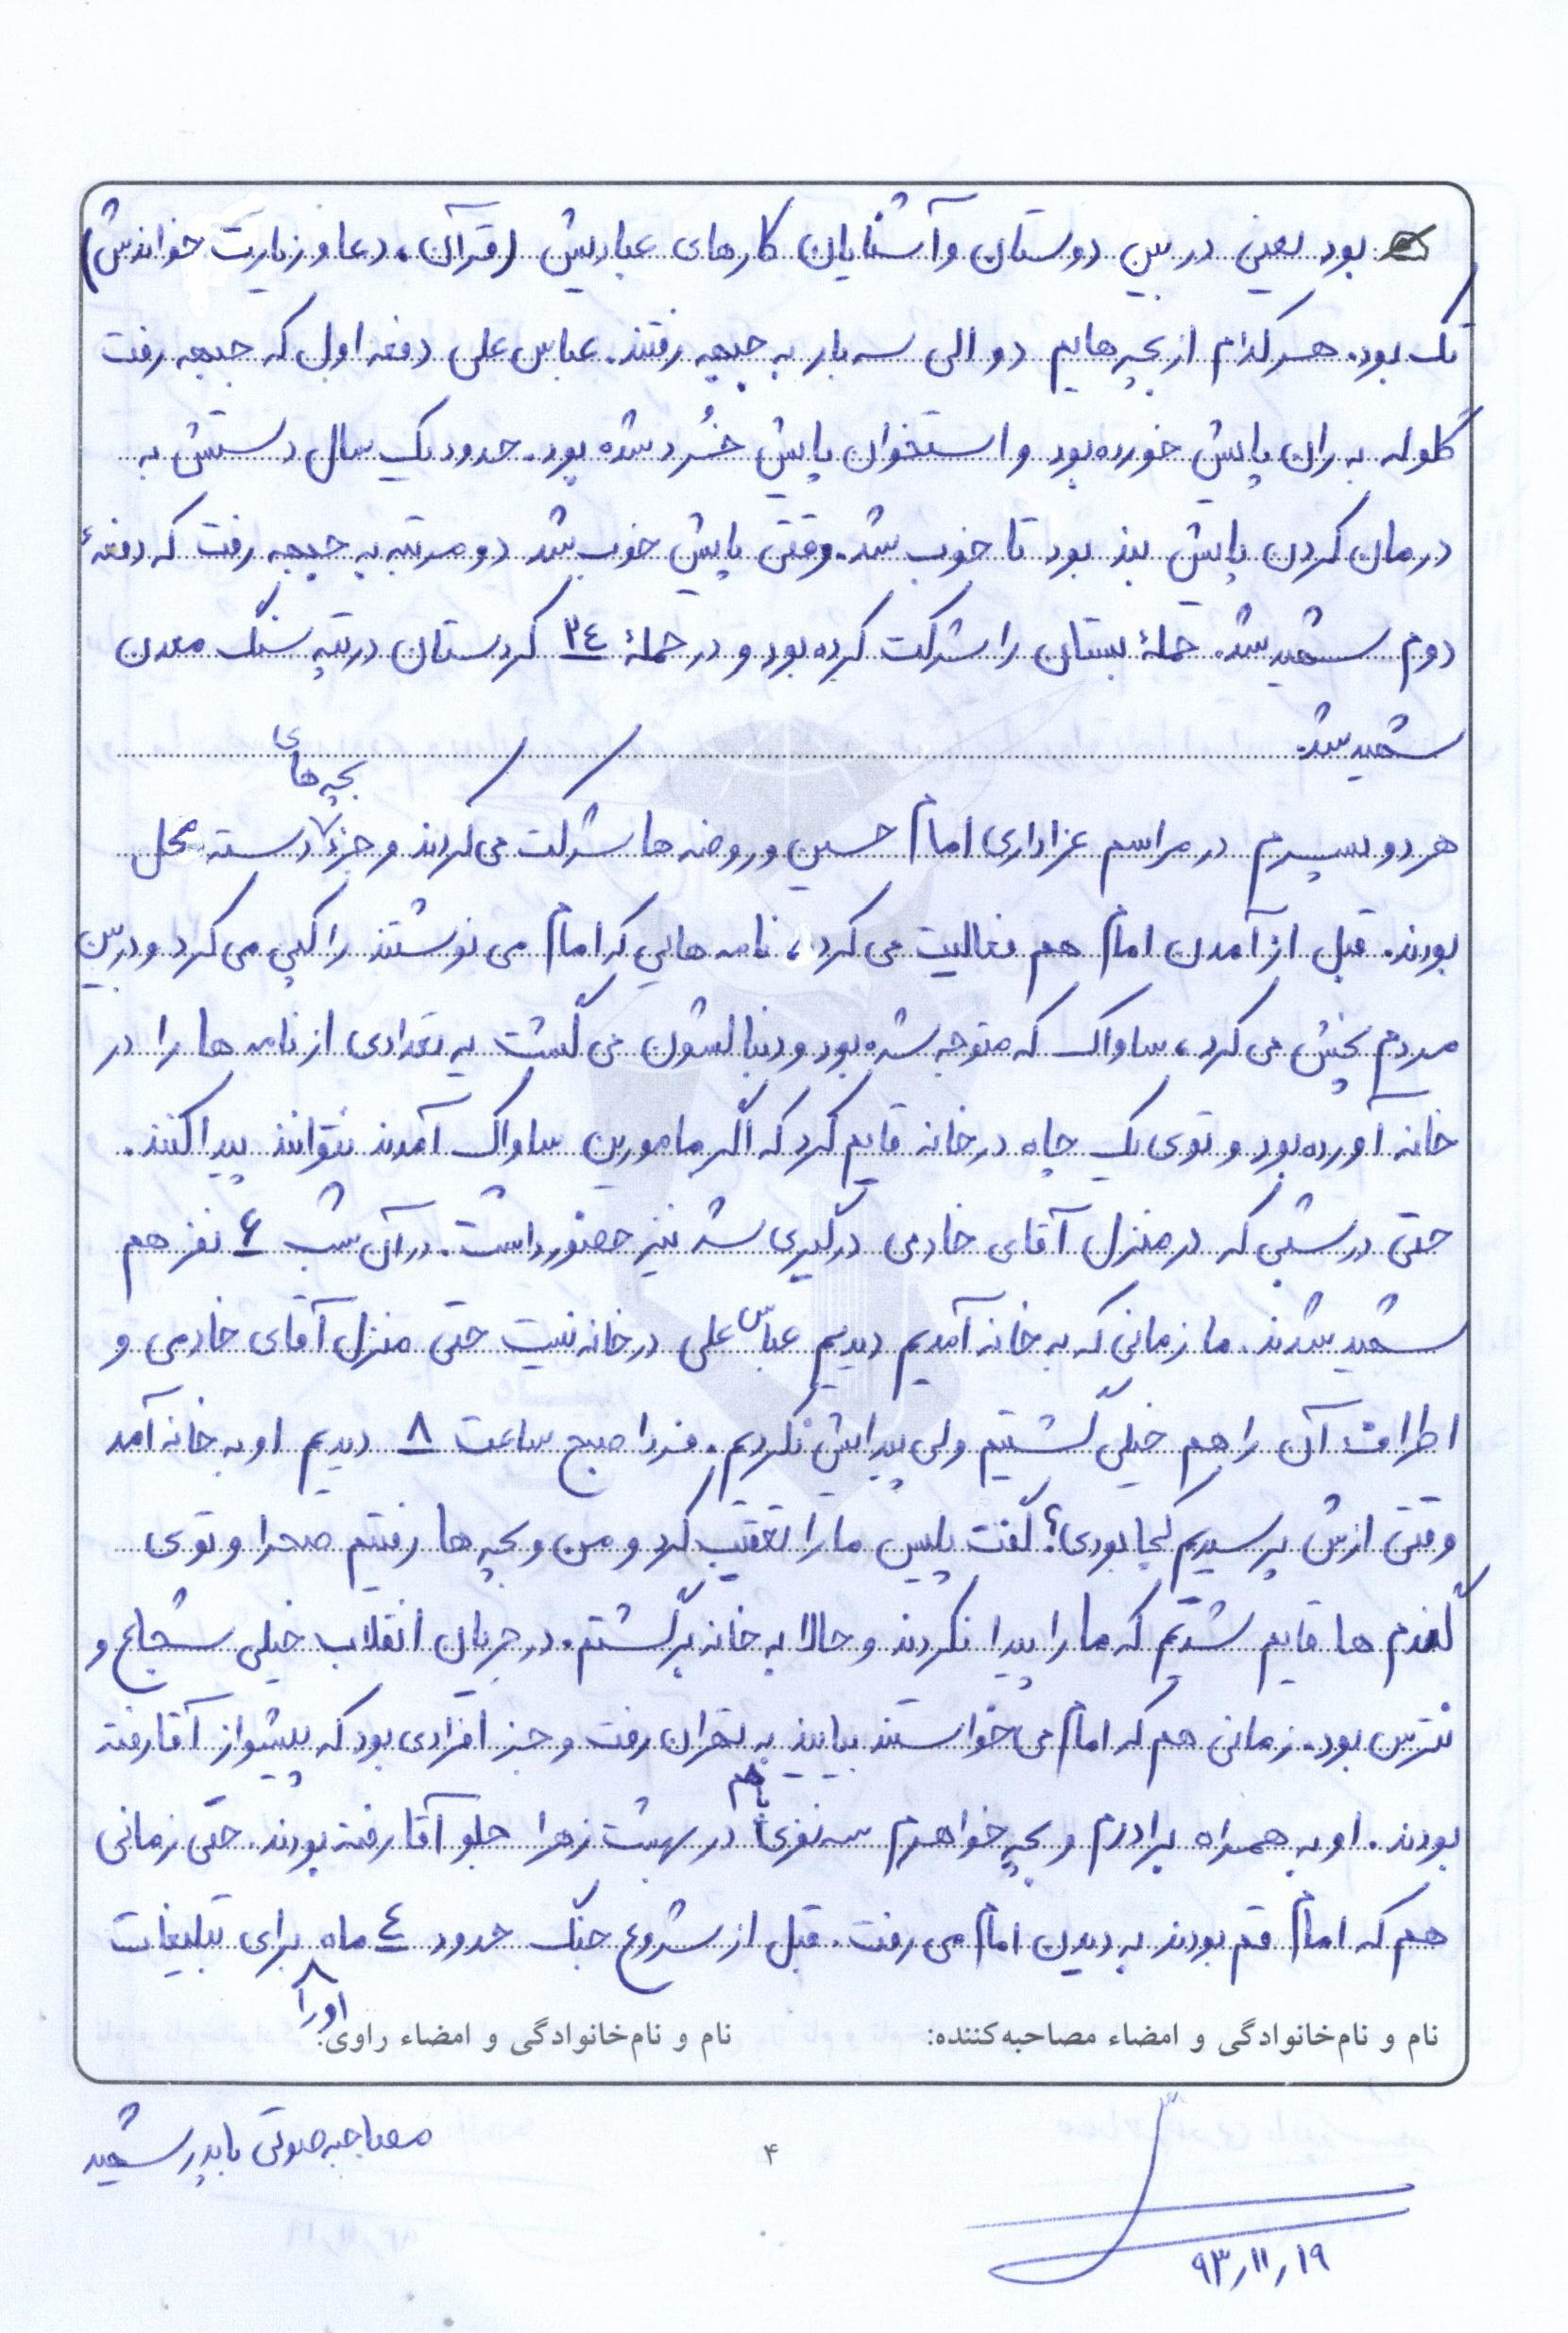 بود یعنی در بین دوستان و آشنایان کارهای عبادیش (قرآن، دعا و زیارت خواندنش)
تک بود. هر کدام از بچه هایم دو الی سه بار به جبهه رفتند. عباس علی دفعه اول که جبهه رفت
گلوله به ران پایش خورده بود و استخوان پایش خُرد شده بود. حدود یک سال دستش به
درمان کردن پایش بند بود تا خوب شد. وقتی پایش خوب شد دو مرتبه به جبهه رفت که دفعهٔ
دوم شهید شد. حملهٔ بستان را شرکت کرده بود و در حملهٔ ۳٤ کردستان در تپه سنگ معدن
شهید شد.
هر دو پسرم در مراسم عزاداری امام حسین و روضه ها شرکت می کردند و جزء بچه های دسته محل
بودند. قبل از آمدن امام هم فعالیت می کرد، نامه هایی که امام می نوشتند را کپی می کرد و در بین
مردم پخش می کرد، ساواک که متوجه شده بود و دنبالشون می گشت یه تعدادی از نامه ها را در
خانه آورده بود و توی یک چاه در خانه قایم کرد که اگر مامورین ساواک آمدند نتوانند پیدا کنند.
حتی در شبی که در منزل آقای خادمی درگیری شد نیز حضور داشت. در آن شب ۶ نفر هم
شهید شدند. ما زمانی که به خانه آمدیم دیدیم عباس علی در خانه نیست حتی منزل آقای خادمی و
اطراف آن را هم خیلی گشتیم ولی پیدایش نکردیم. فردا صبح ساعت ۸ دیدیم او به خانه آمد
وقتی ازش پرسیدیم کجا بودی؟ گفت پلیس ما را تعقیب کرد و من و بچه ها رفتیم صحرا و توی
گندم ها قایم شدیم که ما را پیدا نکردند و حالا به خانه برگشتم. در جریان انقلاب خیلی شجاع و
نترس بود. زمانی هم که امام می خواستند بیایند به تهران رفت و جز افرادی بود که پیشواز آقا رفته
بودند. او به همراه برادرم و بچه خواهرم سه نفری باهم در بهشت زهرا جلو آقا رفته بودند. حتّی زمانی
هم که امام قم بودند به دیدن امام می رفت. قبل از شروع جنگ حدود ٤ ماه او را برای تبلیغات
نام و نام‌خانوادگی و امضاء مصاحبه‌کننده: نام و نام‌خانوادگی و امضاء راوی:
مصاحبه صوتی با پدر شهید
۴
۹۳/۱۱/۱۹